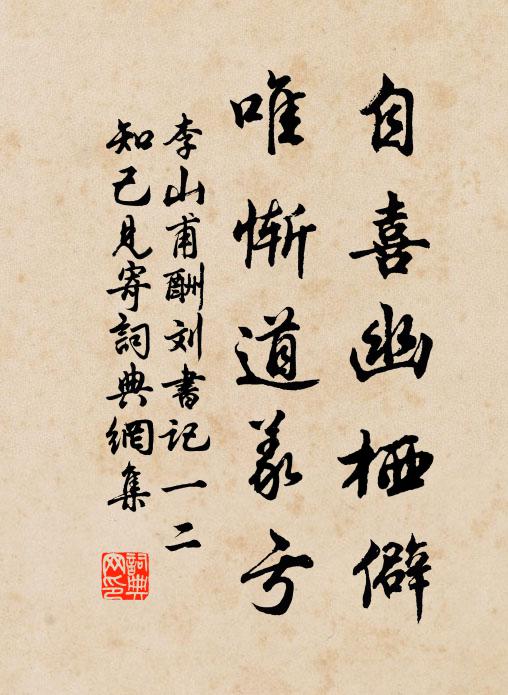 自喜幽栖僻
唯惭道义亏
李山甫酬刘書记一二
知己見寄詞典網集
詞典
网印